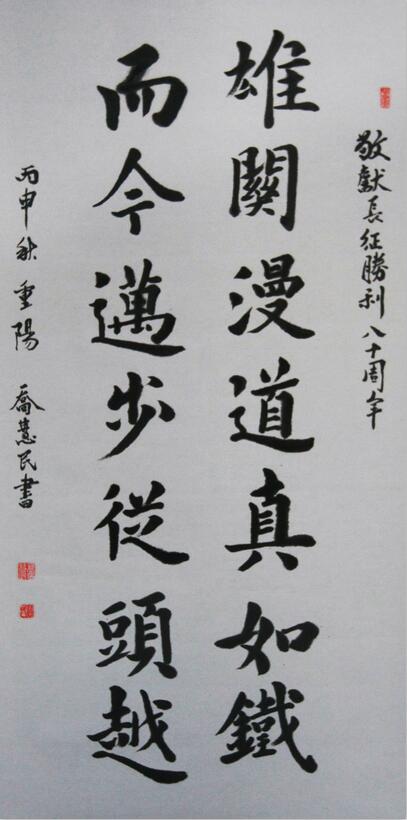 敬獻長征勝利八十周年
雄關漫道真如鐵
而今邁步從頭越
丙申秋重陽 喬慧民書